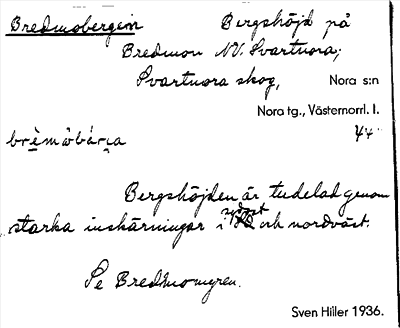 Bredmobergen Bergshöjd på
Bredmon NV. Svartnora;
Svartnora skog, Nora s:n
Nora tg., Västernorrl. l.
brèmåbárɳa 44
Bergshöjden är tudelad genom
starka inskärningar i sydost och nordväst.
Se Bredmomyren.
Sven Hiller 1936.